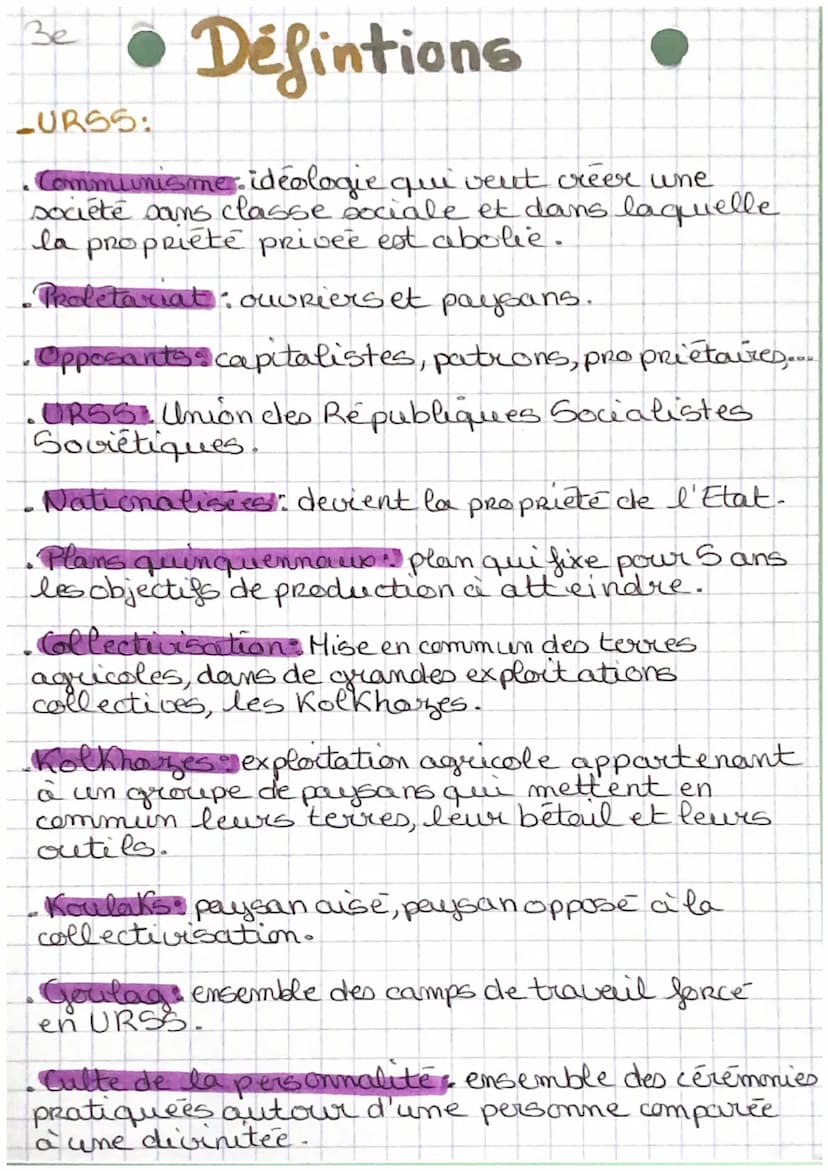 3e
Défintions
-URSS:
. Communisme: idéologie qui veut créer une
société sans classe sociale et dans laquelle
la propriété privée est abolie.
. Proletariat : ouvriers et paysans.
. Opposants: capitalistes, patrons, propriétaires,...
. URSS: Union des Républiques Socialistes
Soviétiques.
. Nationalisées: devient la propriété de l'Etat.
. Plans quinquennaux: plan qui fixe pour 5 ans
les objectifs de production à atteindre.
. Collectivisation: Mise en commun des terres
agricoles, dans de grandes exploitations
collectives, les Kolkhozes.
. Kolkhozes: exploitation agricole appartenant
à un groupe de paysans qui mettent en
commun leurs terres, leur bétail et leurs
outils.
. Koulaks: paysan aisé, paysan opposé à la
collectivisation.
. Goulag: ensemble des camps de travail forcé
en URSS.
. Culte de la personnalité: ensemble des cérémonies
pratiquées autour d'une personne comparée
à une divinitée.